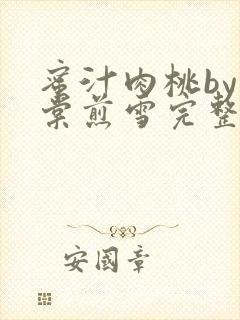 蜜汁肉桃by
棠煎雪完整
安國章